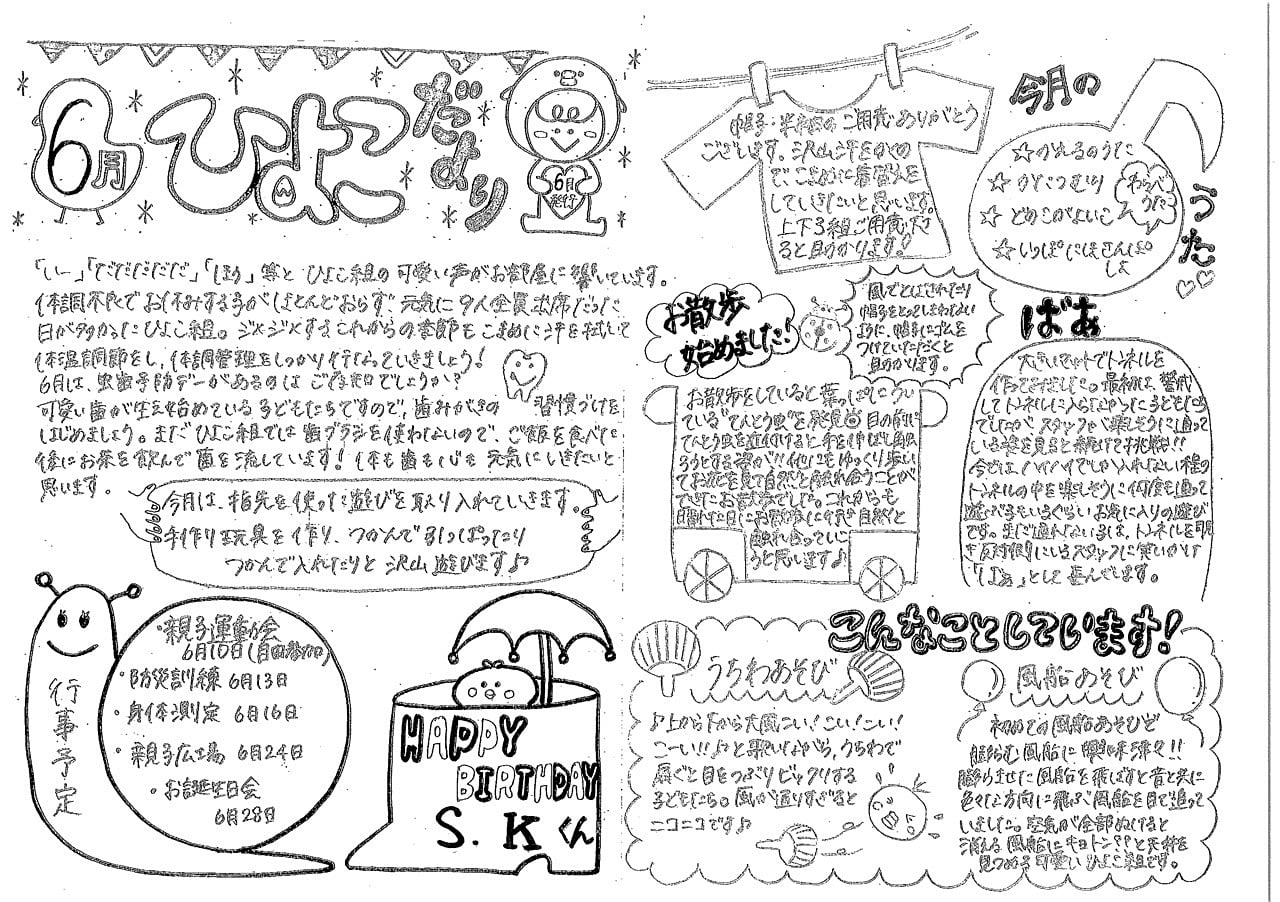 6月 ひよこだより
6月発行
「いー」「だだだだだだ」「ほぅ」等と ひよこ組の可愛い声がお部屋に響いています。
体調不良でお休みする子がほとんどおらず、元気に9人全員出席だった
日が多かったひよこ組。ジメジメするこれからの季節もこまめに汗を拭いて
体温調節をし、体調管理をしっかり行なっていきましょう!
6月は、虫歯予防デーがあるのは ご存知でしょうか?
可愛い歯が生え始めている子どもたちですので、歯みがきの 習慣づけを
はじめましょう。まだひよこ組では歯ブラシを使わないので、ご飯を食べた
後にお茶を飲んで菌を流しています! 体も歯も心も 元気にいきたいと
思います。
今月は、指先を使った遊びを取り入れていきます。
手作り玩具を作り、つかんで引っぱったり
つかんで入れたりと 沢山遊びます♪
行事予定
・親子運動会
6月10日(自由参加)
・防災訓練 6月13日
・身体測定 6月16日
・親子広場 6月24日
・お誕生日会
6月28日
HAPPY
BIRTHDAY
S.Kくん
帽子・半そでの ご用意ありがとう
ございます。沢山汗をかくの
で、こまめに着替えを
していきたいと思います。
上下3組ご用意下さ
ると助かります!
今月のうた♡♡
☆かえるのうた
☆かたつむり
☆どのこがよいこ
☆いっぽにほさんぽ
しよ
わらべうた
お散歩
始めました!
風でとばされたり
帽子をとってしまわない
ように、帽子にゴムを
つけていただくと
助かります。
お散歩をしていると葉っぱについ
ている"てんとう虫"を発見 目の前に
てんとう虫を近付けると手を伸ばし触
ろうとする姿が!!他にもゆっくり歩い
てお花を見て自然と触れ合うことが
できたお散歩でした。これからも
晴れた日にお散歩に行き自然と
触れ合ってい
こうと思います♪
ばあ
大きいマットでトンネルを
作ってみました。最初は、警戒
してトンネルに入らなかった子どもたち
でしたが、スタッフが楽しそうに通って
いる姿を見ると続けて挑戦!!
今では、ハイハイでしか入れない程の
トンネルの中を楽しそうに何度も通って
遊ぶ子もいるぐらい お気に入りの遊び
です。まだ通れない子は、トンネルを覗
き反対側にいるスタッフに笑いかけ
「ばぁ」として喜んでいます。
こんなことしています!
うちわあそび
♪上から下から大風こい!こい!こい!
こーい!!♪と歌いながら、うちわで
扇ぐと目をつぶりビックリする
子どもたち。風が通りすぎると
ニコニコです♪
風船あそび
初めての風船あそびで
膨らむ風船に興味深々!!
膨らませた風船を飛ばすと音と共に
色々な方向に飛ぶ風船を目で追って
いました。空気が全部ぬけると
消える風船にキョトン??と天井を
見つめる可愛いひよこ組です。